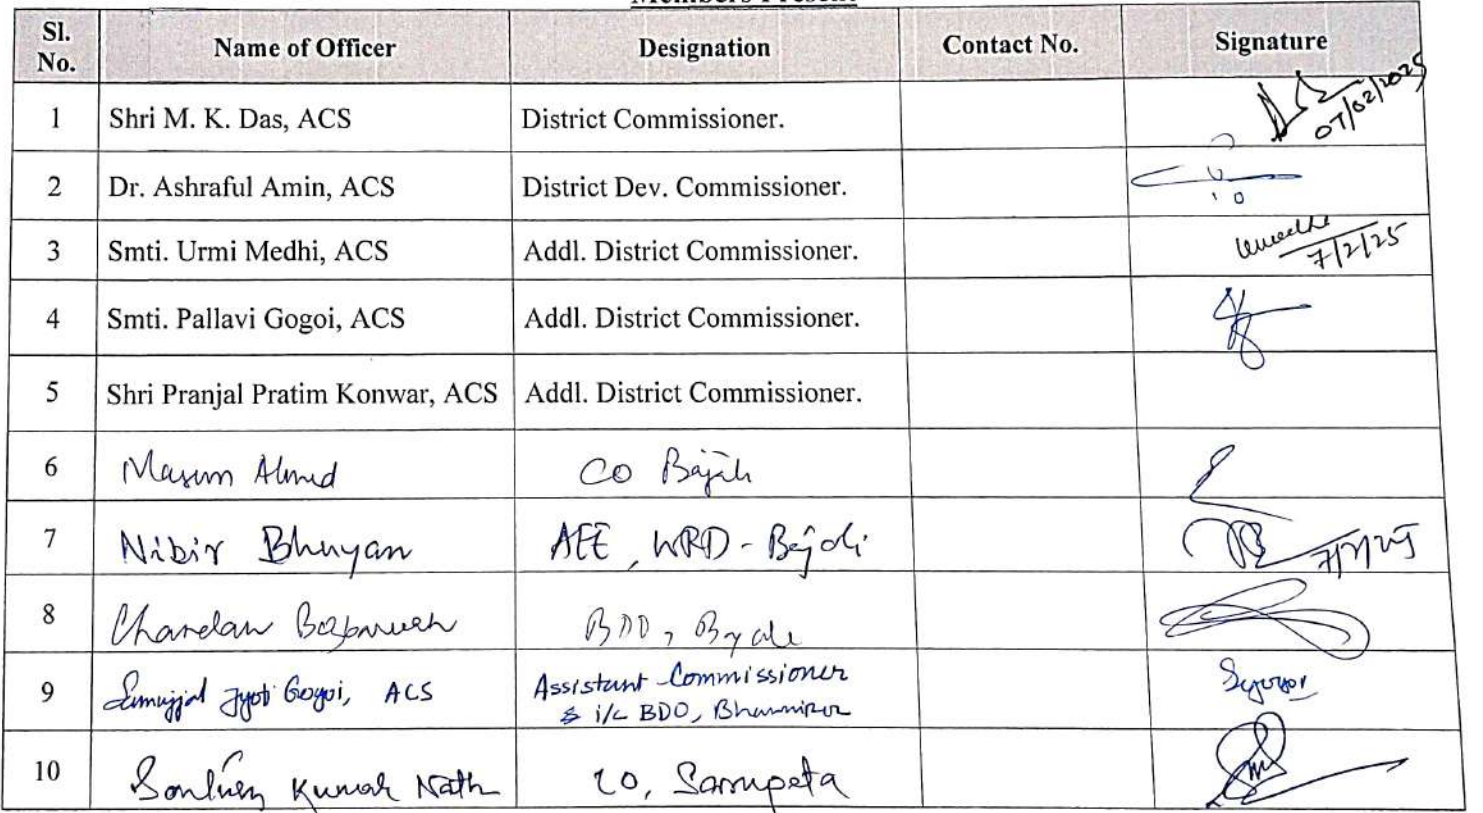 Members Present
Sl. No. Name of Officer Designation Contact No. Signature
07/02/2025
1 Shri M. K. Das, ACS District Commissioner.
2 Dr. Ashraful Amin, ACS District Dev. Commissioner.
3 Smti. Urmi Medhi, ACS Addl. District Commissioner.
7/2/25
4 Smti. Pallavi Gogoi, ACS Addl. District Commissioner.
5 Shri Pranjal Pratim Konwar, ACS Addl. District Commissioner.
6 Masum Ahmed CO Bajali
7 Nibir Bhuyan AEE, WRD - Bajali 7/2/25
8 Chandan Bozbaruah BDO, Bajali
9 Jyoti Gogoi, ACS Assistant Commissioner
& i/c BDO, Bhawanipur
10 Kumar Nath CO, Sarupeta